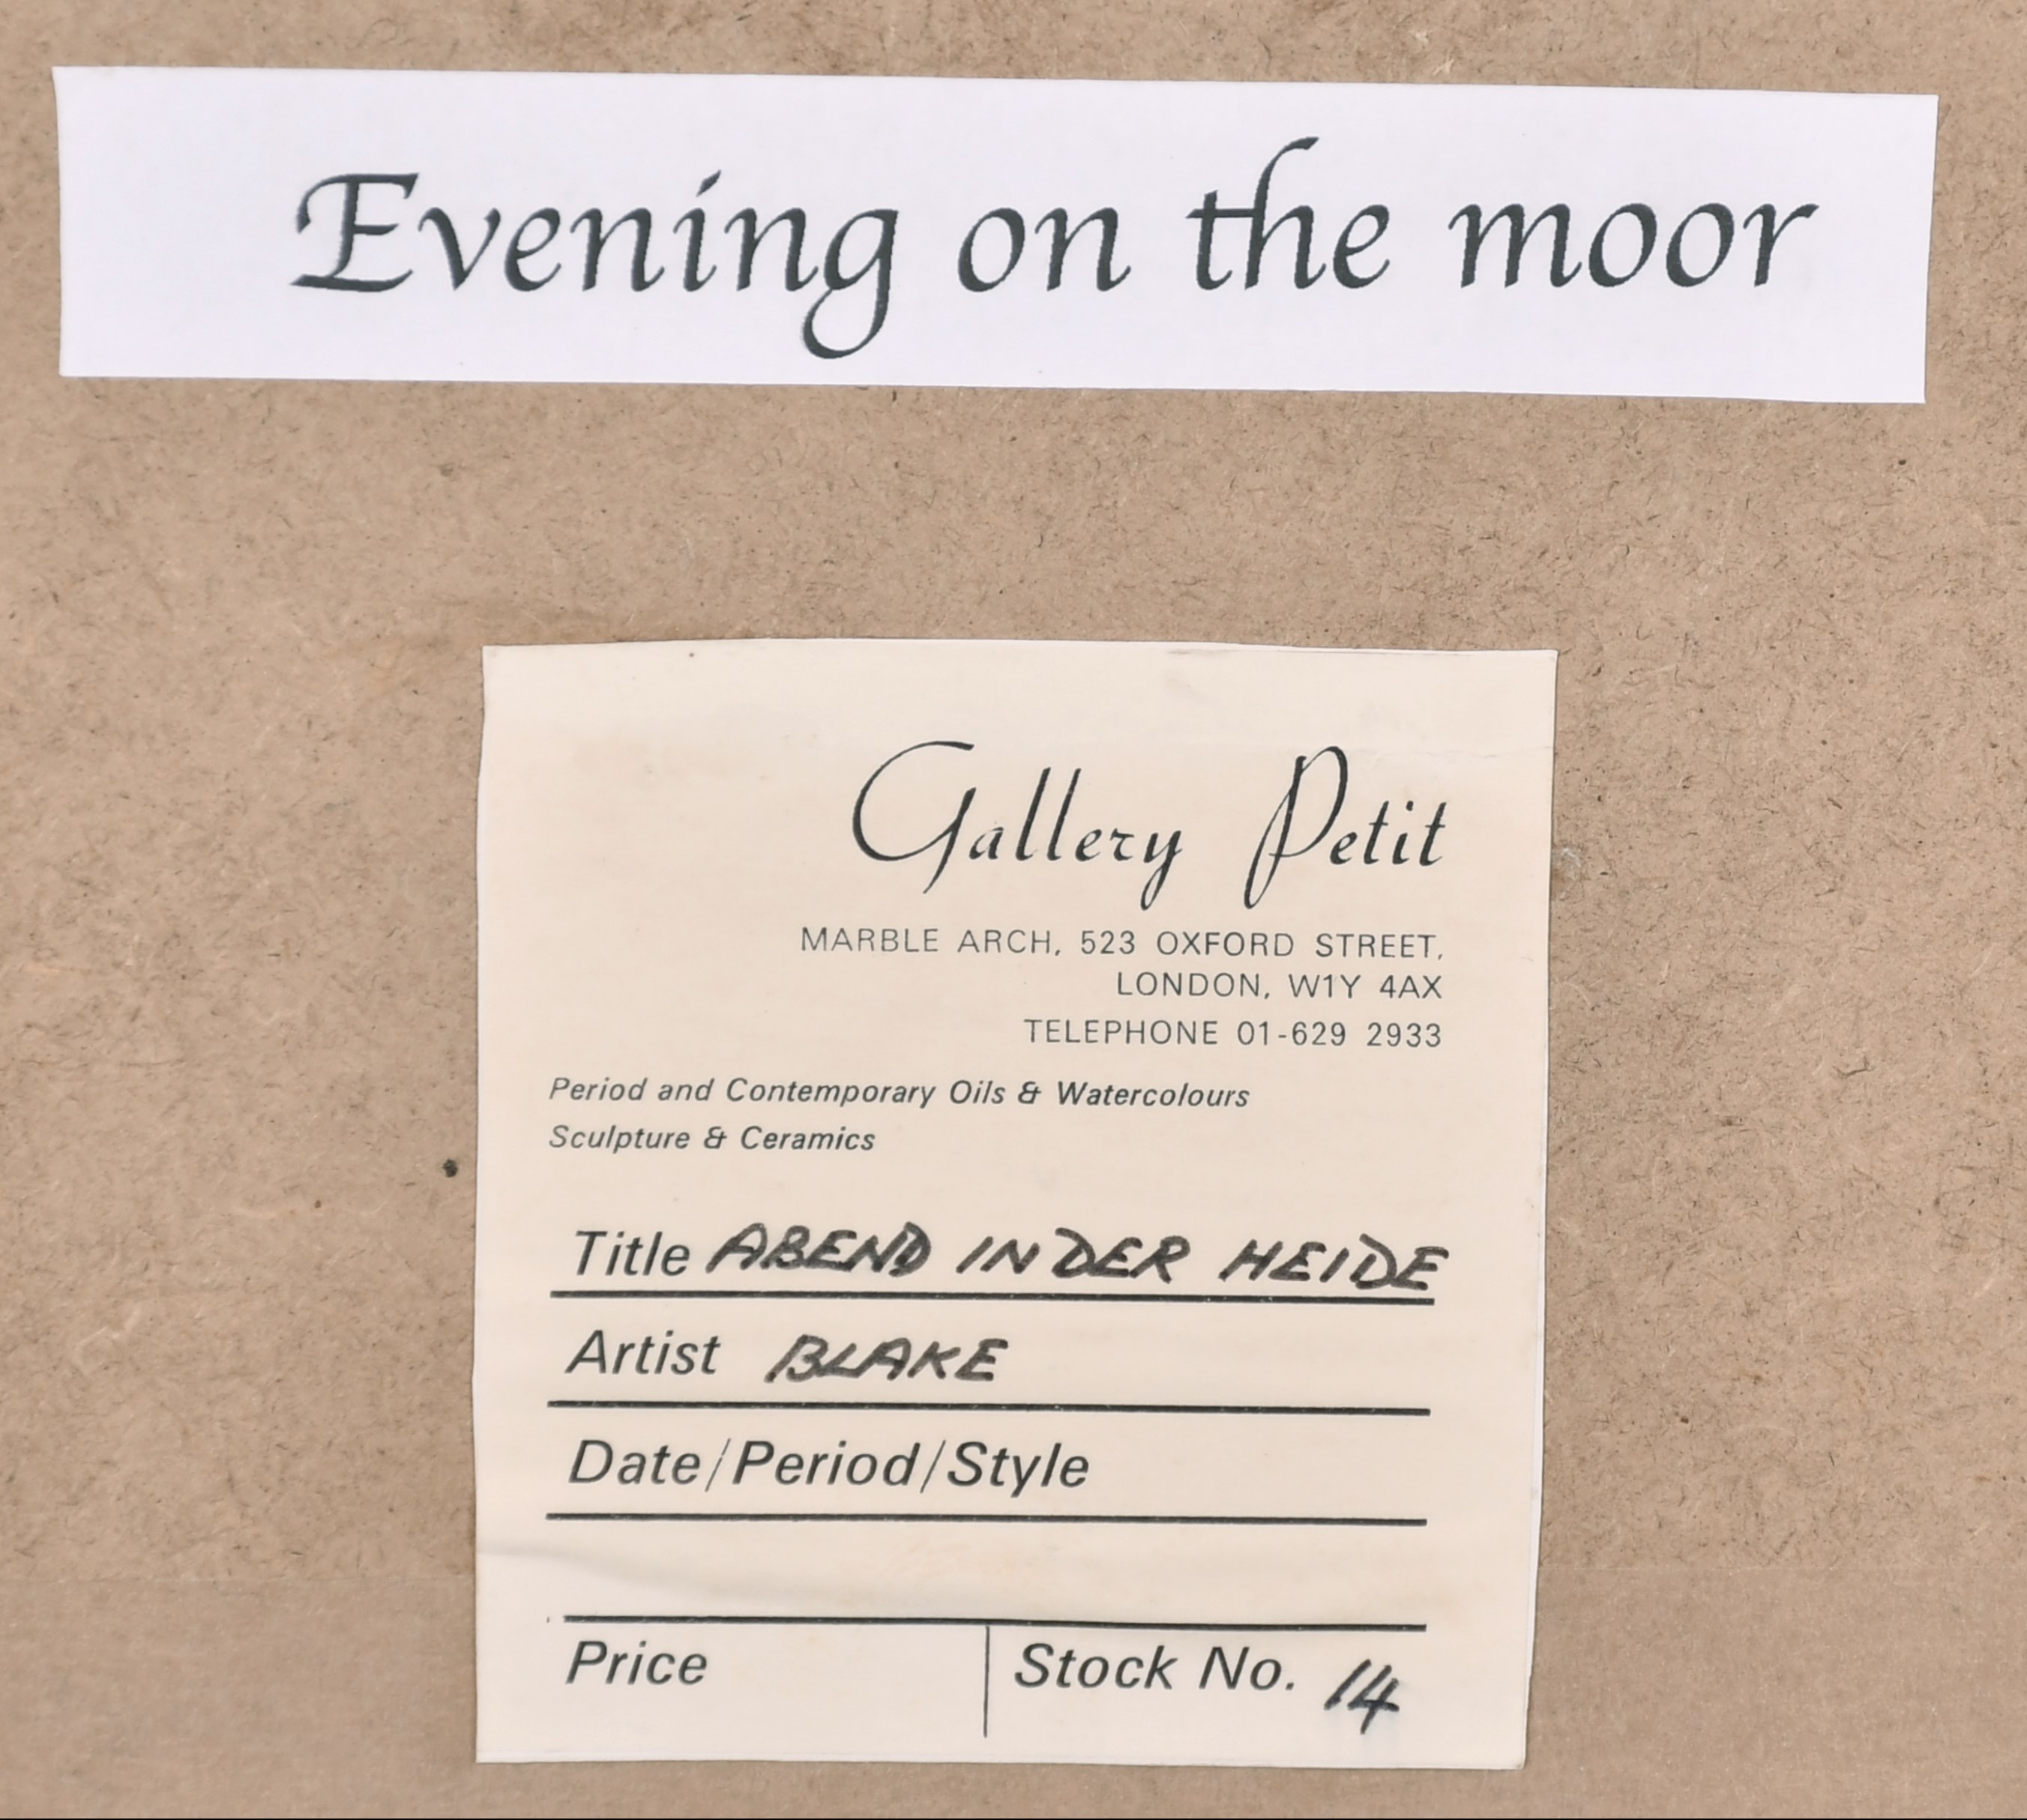 Evening on the moor
Gallery Petit
MARBLE ARCH, 523 OXFORD STREET,
LONDON, W1Y 4AX
TELEPHONE 01-629 2933
Period and Contemporary Oils & Watercolours
Sculpture & Ceramics
Title ABEND IN DER HEIDE
Artist BLAKE
Date/Period/Style
Price Stock No. 14